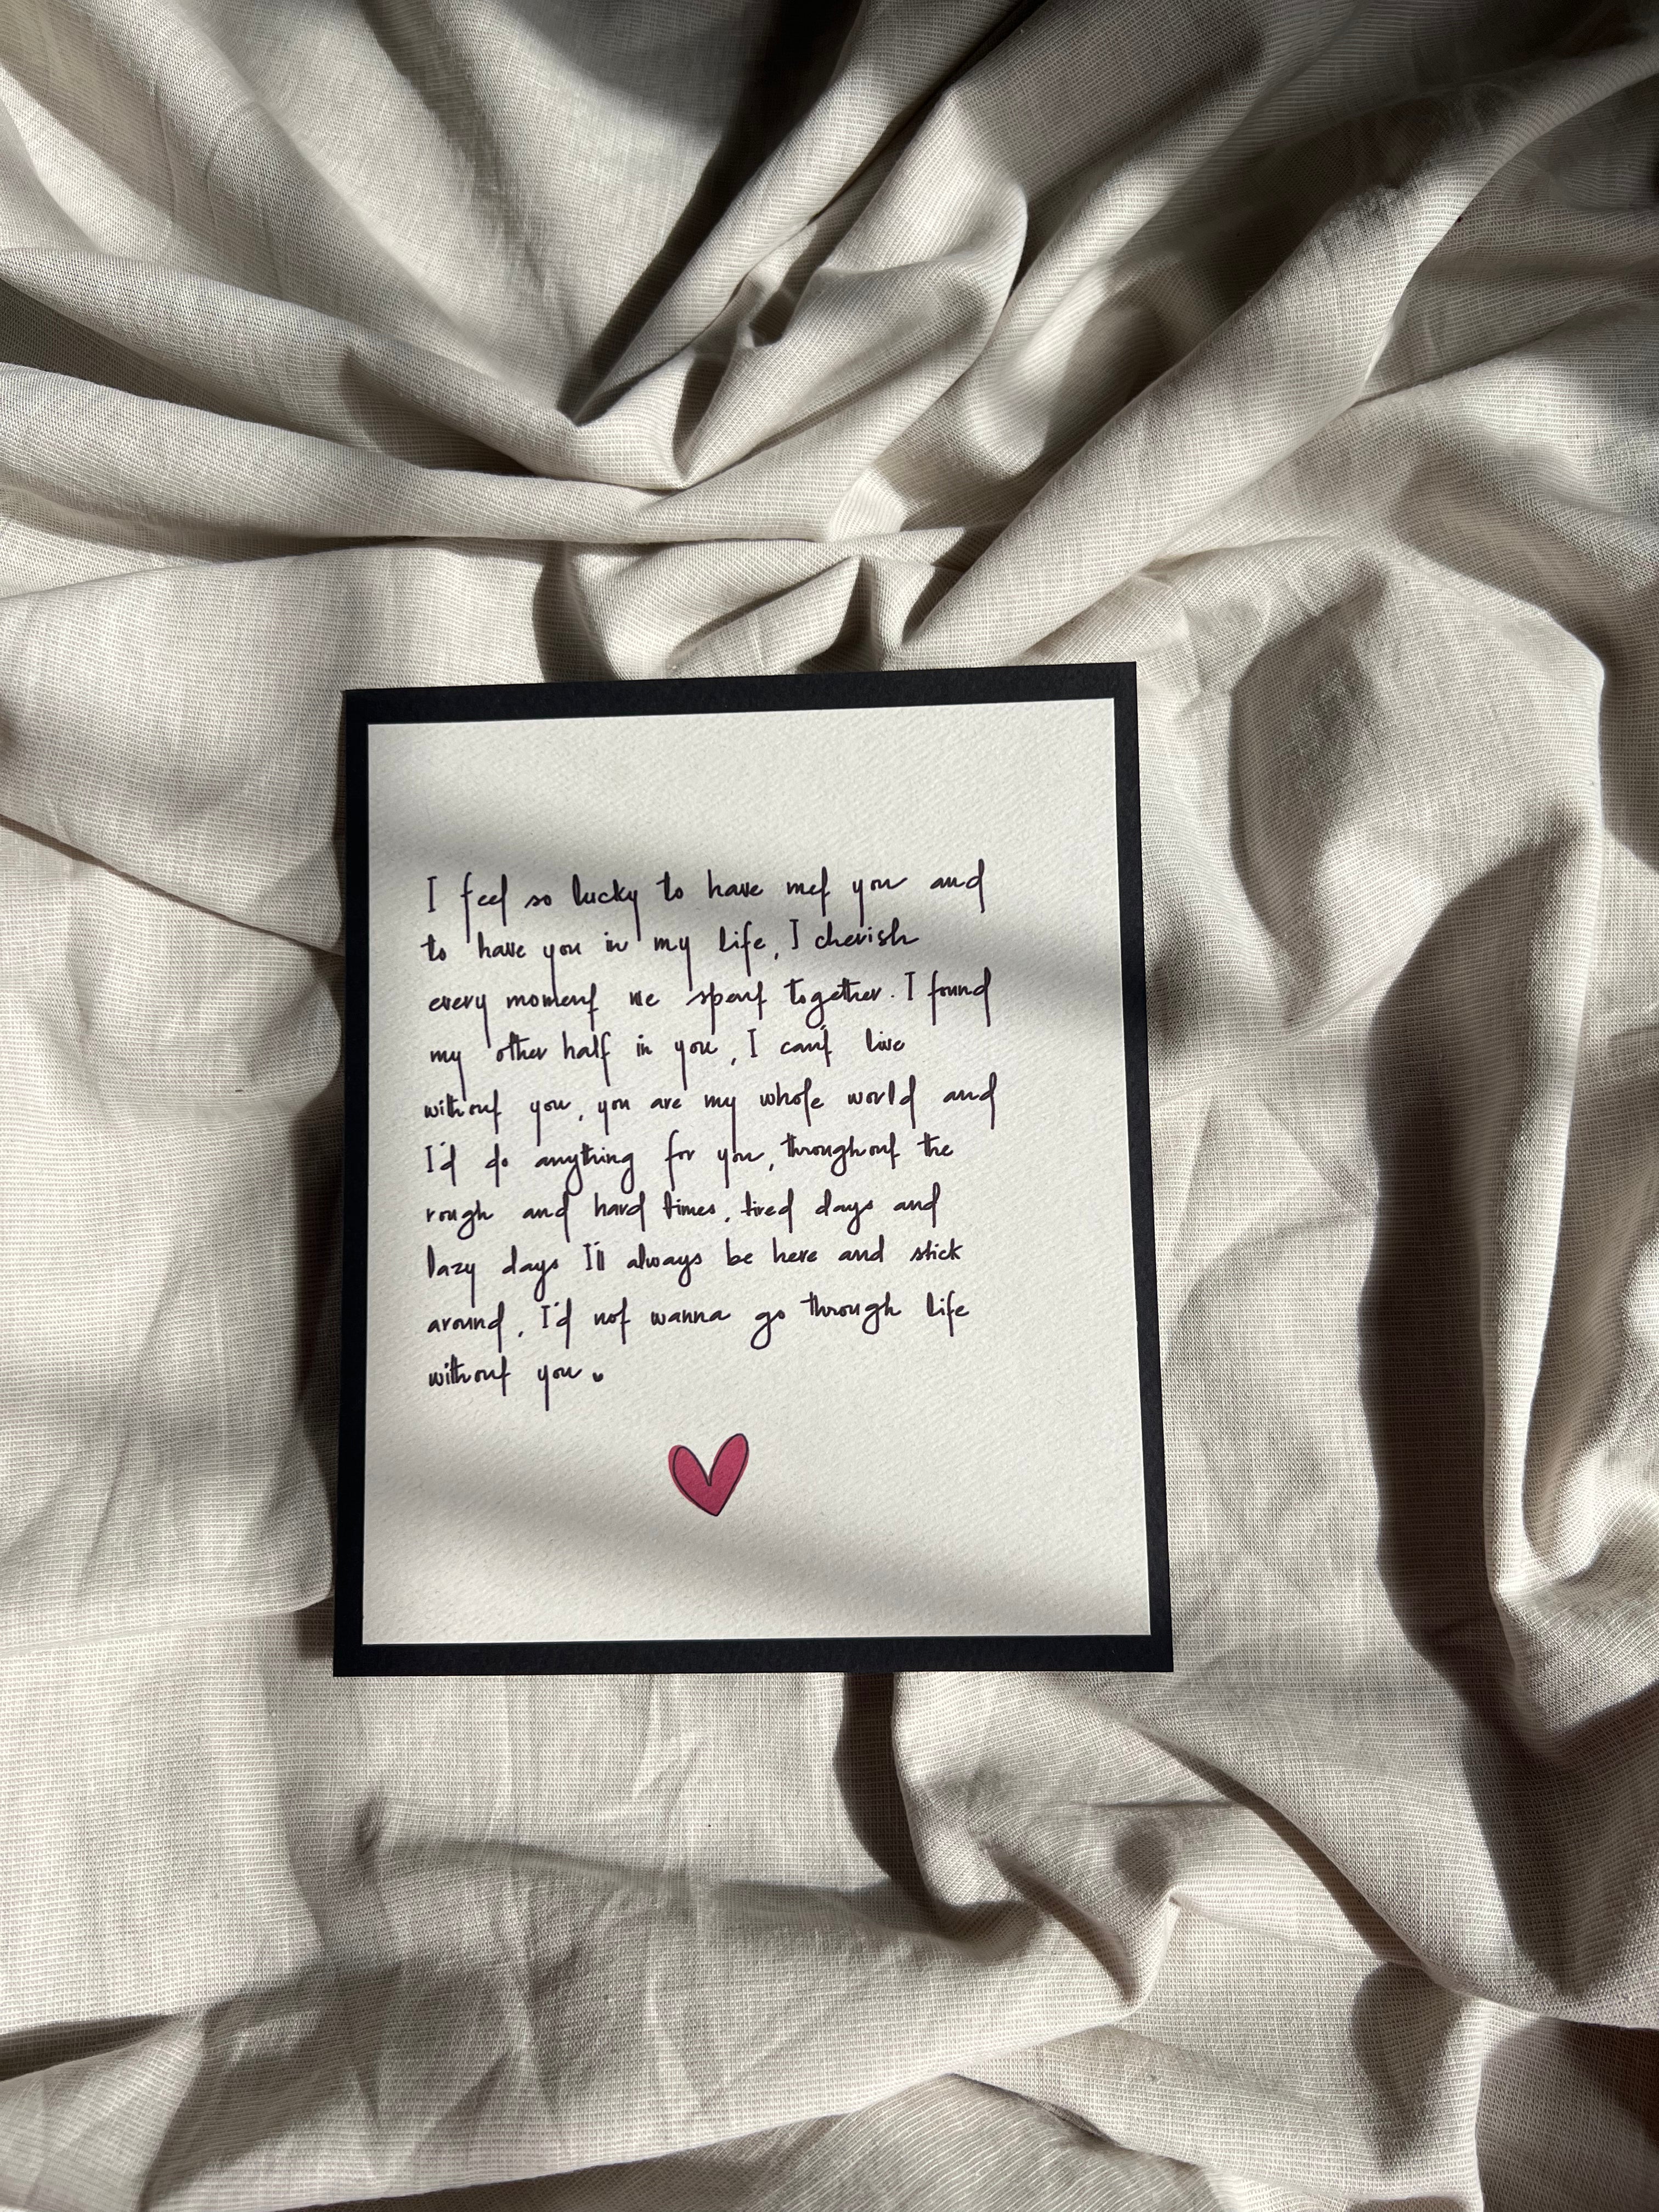 I feel so lucky to have met you and
to have you in my life, I cherish
every moment we spent together. I found
my other half in you, I can't live
without you, you are my whole world and
I'd do anything for you, throughout the
rough and hard times, tired days and
lazy days I'll always be here and stick
around, I'd not wanna go through life
without you.